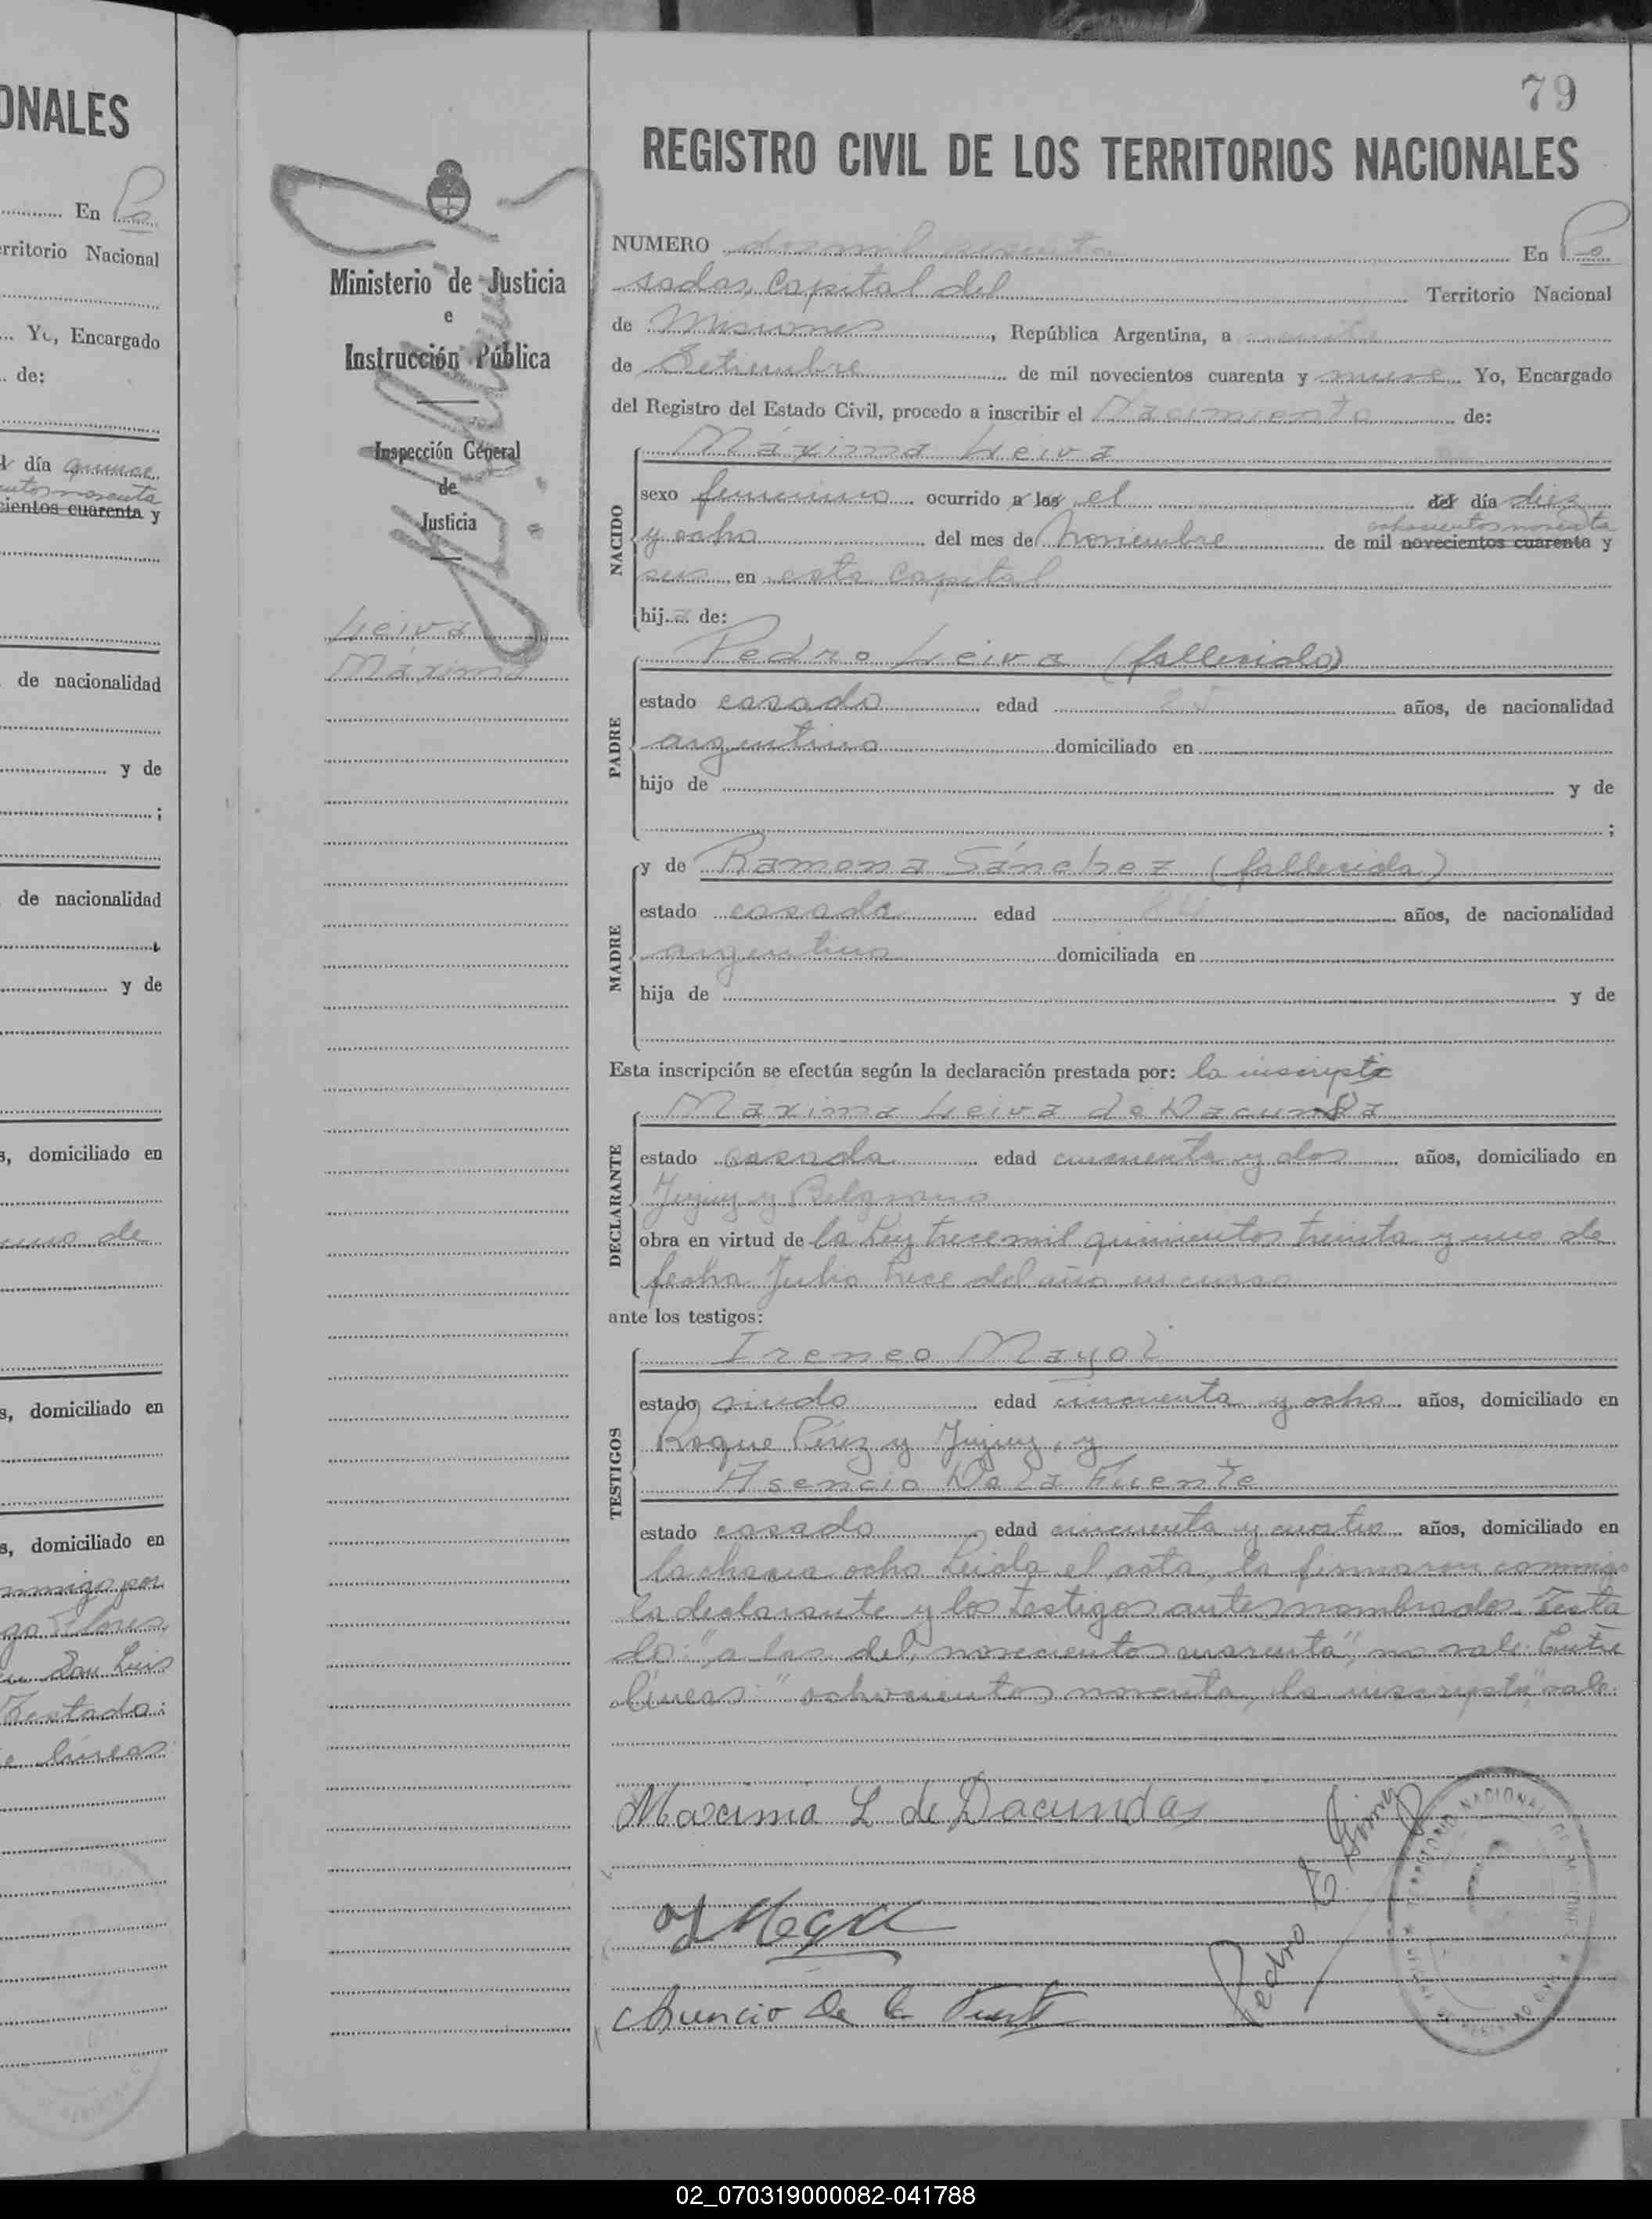 ONALES
En Po
erritorio Nacional
Yo, Encargado
de:
día quince
cientos noventa
cientos cuarenta y
de nacionalidad
y de
;
de nacionalidad
y de
s, domiciliado en
uno de
s, domiciliado en
s, domiciliado en
conmigo por
go Flores,
en San Luis
Testado:
e líneas
Ministerio de Justicia
e
Instrucción Pública
Inspección General
de
Justicia
Leiva
Máxima
79
REGISTRO CIVIL DE LOS TERRITORIOS NACIONALES
NUMERO dos mil sesenta En Po
sadas, Capital del Territorio Nacional
de Misiones, República Argentina, a
de Setiembre de mil novecientos cuarenta y nueve Yo, Encargado
del Registro del Estado Civil, procedo a inscribir el Nacimiento de:
NACIDO
Máxima Leiva
sexo femenino ocurrido a las el del día diez
ochocientos noventa
y ocho del mes de Noviembre de mil novecientos cuarenta y
seis en esta capital
hija de:
PADRE
Pedro Leiva (fallecido)
estado casado edad 25 años, de nacionalidad
argentino domiciliado en
hijo de y de
;
MADRE
y de Ramona Sánchez (fallecida)
estado casada edad años, de nacionalidad
argentina domiciliada en
hija de y de
Esta inscripción se efectúa según la declaración prestada por: la inscripta
DECLARANTE
Máxima Leiva de Dacunda
estado casada edad cincuenta y dos años, domiciliado en
Jujuy y Belgrano
obra en virtud de la Ley trece mil quinientos treinta y uno de
fecha Julio trece del año en curso
ante los testigos:
TESTIGOS
Ireneo Mayol
estado viudo edad cincuenta y ocho años, domiciliado en
Roque Pérez y Jujuy, y
Asencio De la Fuente
estado casado edad cincuenta y cuatro años, domiciliado en
la chacra ocho Leida el acta, la firmaron conmigo
la declarante y los testigos antes nombrados. Testa
do: "a las del, novecientos cuarenta", no vale. Entre
líneas: "ochocientos noventa, la inscripta" vale.
Maxima L de Dacundas
Asencio De la Fuente
Pedro E. Gimenez
TERRITORIO NACIONAL DE MISIONES
02_070319000082-041788